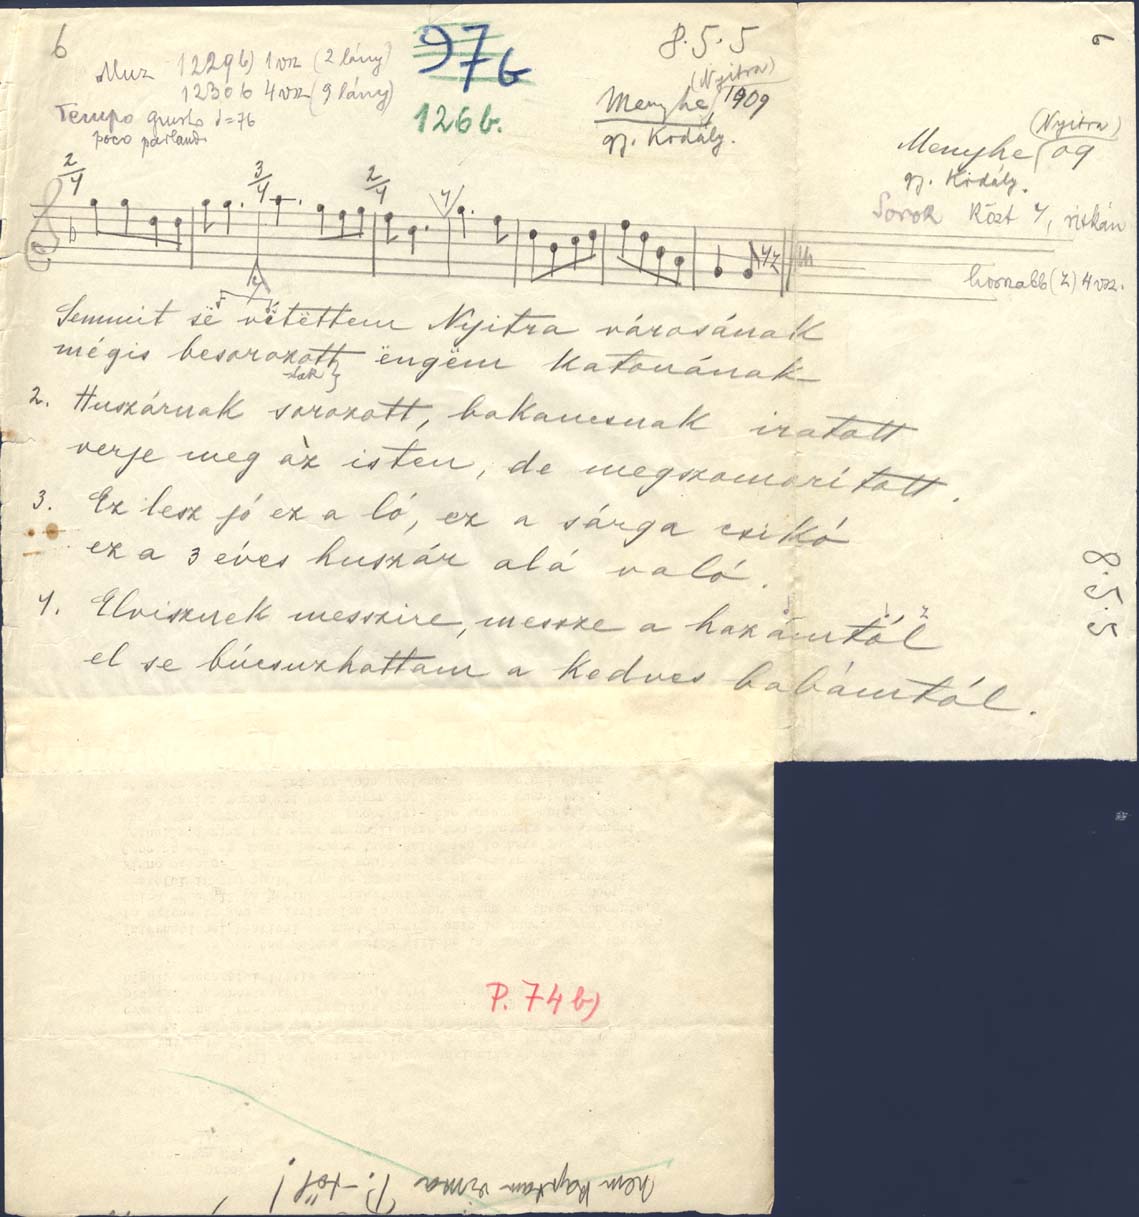 6
Muz 1229 b) 1 vsz (2 lány)
1230 b 4 vsz (9 lány)
Tempo giusto = 76
poco parlando
97 b
126 b.
8.5.5
(Nyitra)
Menyhe 1909
gy. Kodály.
6
(Nyitra)
Menyhe 09
gy. Kodály.
Sorok közt 4, ritkán
hosszabb (z) 4 vsz.
2/4 3/4 2/4
Semmit së vétëttem Nyitra városának
mégis besorozott ëngëm katonának
-tak
2. Huszárnak sorozott, bakancsnak iratott
verje meg az isten, de megszomorított.
3. Ez lesz jó ez a ló, ez a sárga csikó
ez a 3 éves huszár alá való.
4. Elvisznek messzire, messze a hazámtól
el se búcsuzhattam a kedves babámtól.
8.5.5
P. 74 b)
nem kaptam vissza P.-től!